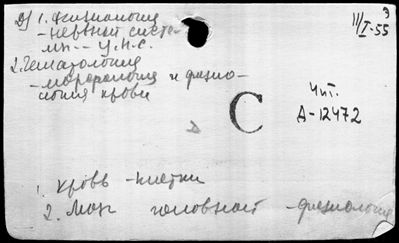 2) 1. Физиология
- нервной систе-
мы -- ц.н.с.
2. Гематология
- морфология и физио-
логия крови
11/I-55
Чит.
А-12472
С
1. Кровь - клетки
2. Мозг головной - физиология